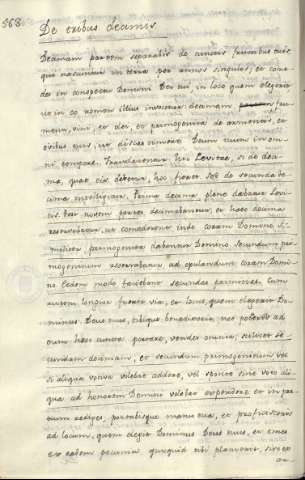 568.
De tribus decimis
Decimam partem separabis de cunctis fructibus tuis
qui nascuntur in terra per annos singulos, et come-
des in conspectu Domini Dei tui in loco quem elegerit
ut in eo nomen illius invocetur decimam fru-
menti, vini, et olei, et primogenita de armentis, et
ovibus tuis ut discas timere Deum tuum in om-
ni tempore. hic Levitae, si de deci-
ma, quae eis debetur, hic fratres de secunda de-
cima intelligitur. Prima decima plene dabatur Levi-
tis. hic autem partes decimabantur, et haec decima
reservabatur, ut comederent inde coram Domino. Si-
militer, primogenita dabantur Domino. Secundum pri-
mogenitum reservabatur, ad epulandum coram Domi-
no. Eodem modo faciebant secundas primitias. Cum
autem longior fuerit via, et locus, quem elegerit Do-
minus Deus tuus, tibique benedixerit, nec potueris ad
eum haec cuncta portare, vendes omnia, scilicet se-
cundam decimam, et secundum primogenitum vel
si aliqua victima volebat addere, vel sponte sine voto ali-
qua ad honorem Domini volebat expendere et in pre-
tium rediges, portabisque manu tua, et proficisceris
ad locum, quem elegit Dominus Deus tuus, et emes
ex eadem pecunia quidquid tibi placuerit, sive ex
ar-